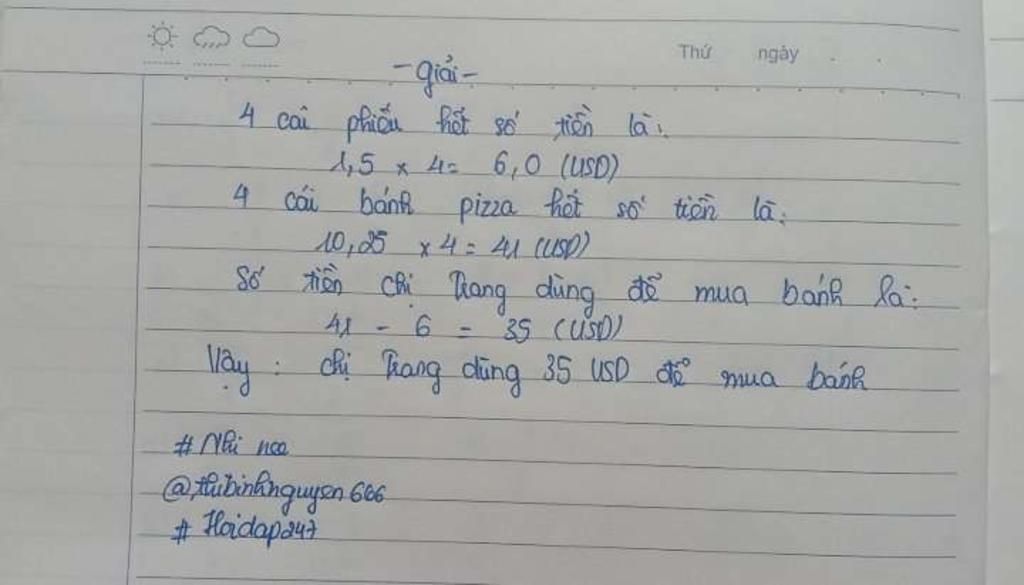 Thứ ngày . .
- Giải -
4 cái phiếu hết số tiền là:
1,5 x 4 = 6,0 (USD)
4 cái bánh pizza hết số tiền là:
10,25 x 4 = 41 (USD)
Số tiền chị Trang dùng để mua bánh là:
41 - 6 = 35 (USD)
Vậy : chị Trang dùng 35 USD để mua bánh
# Nhi nee
@thubinhnguyen666
# Hoidap247